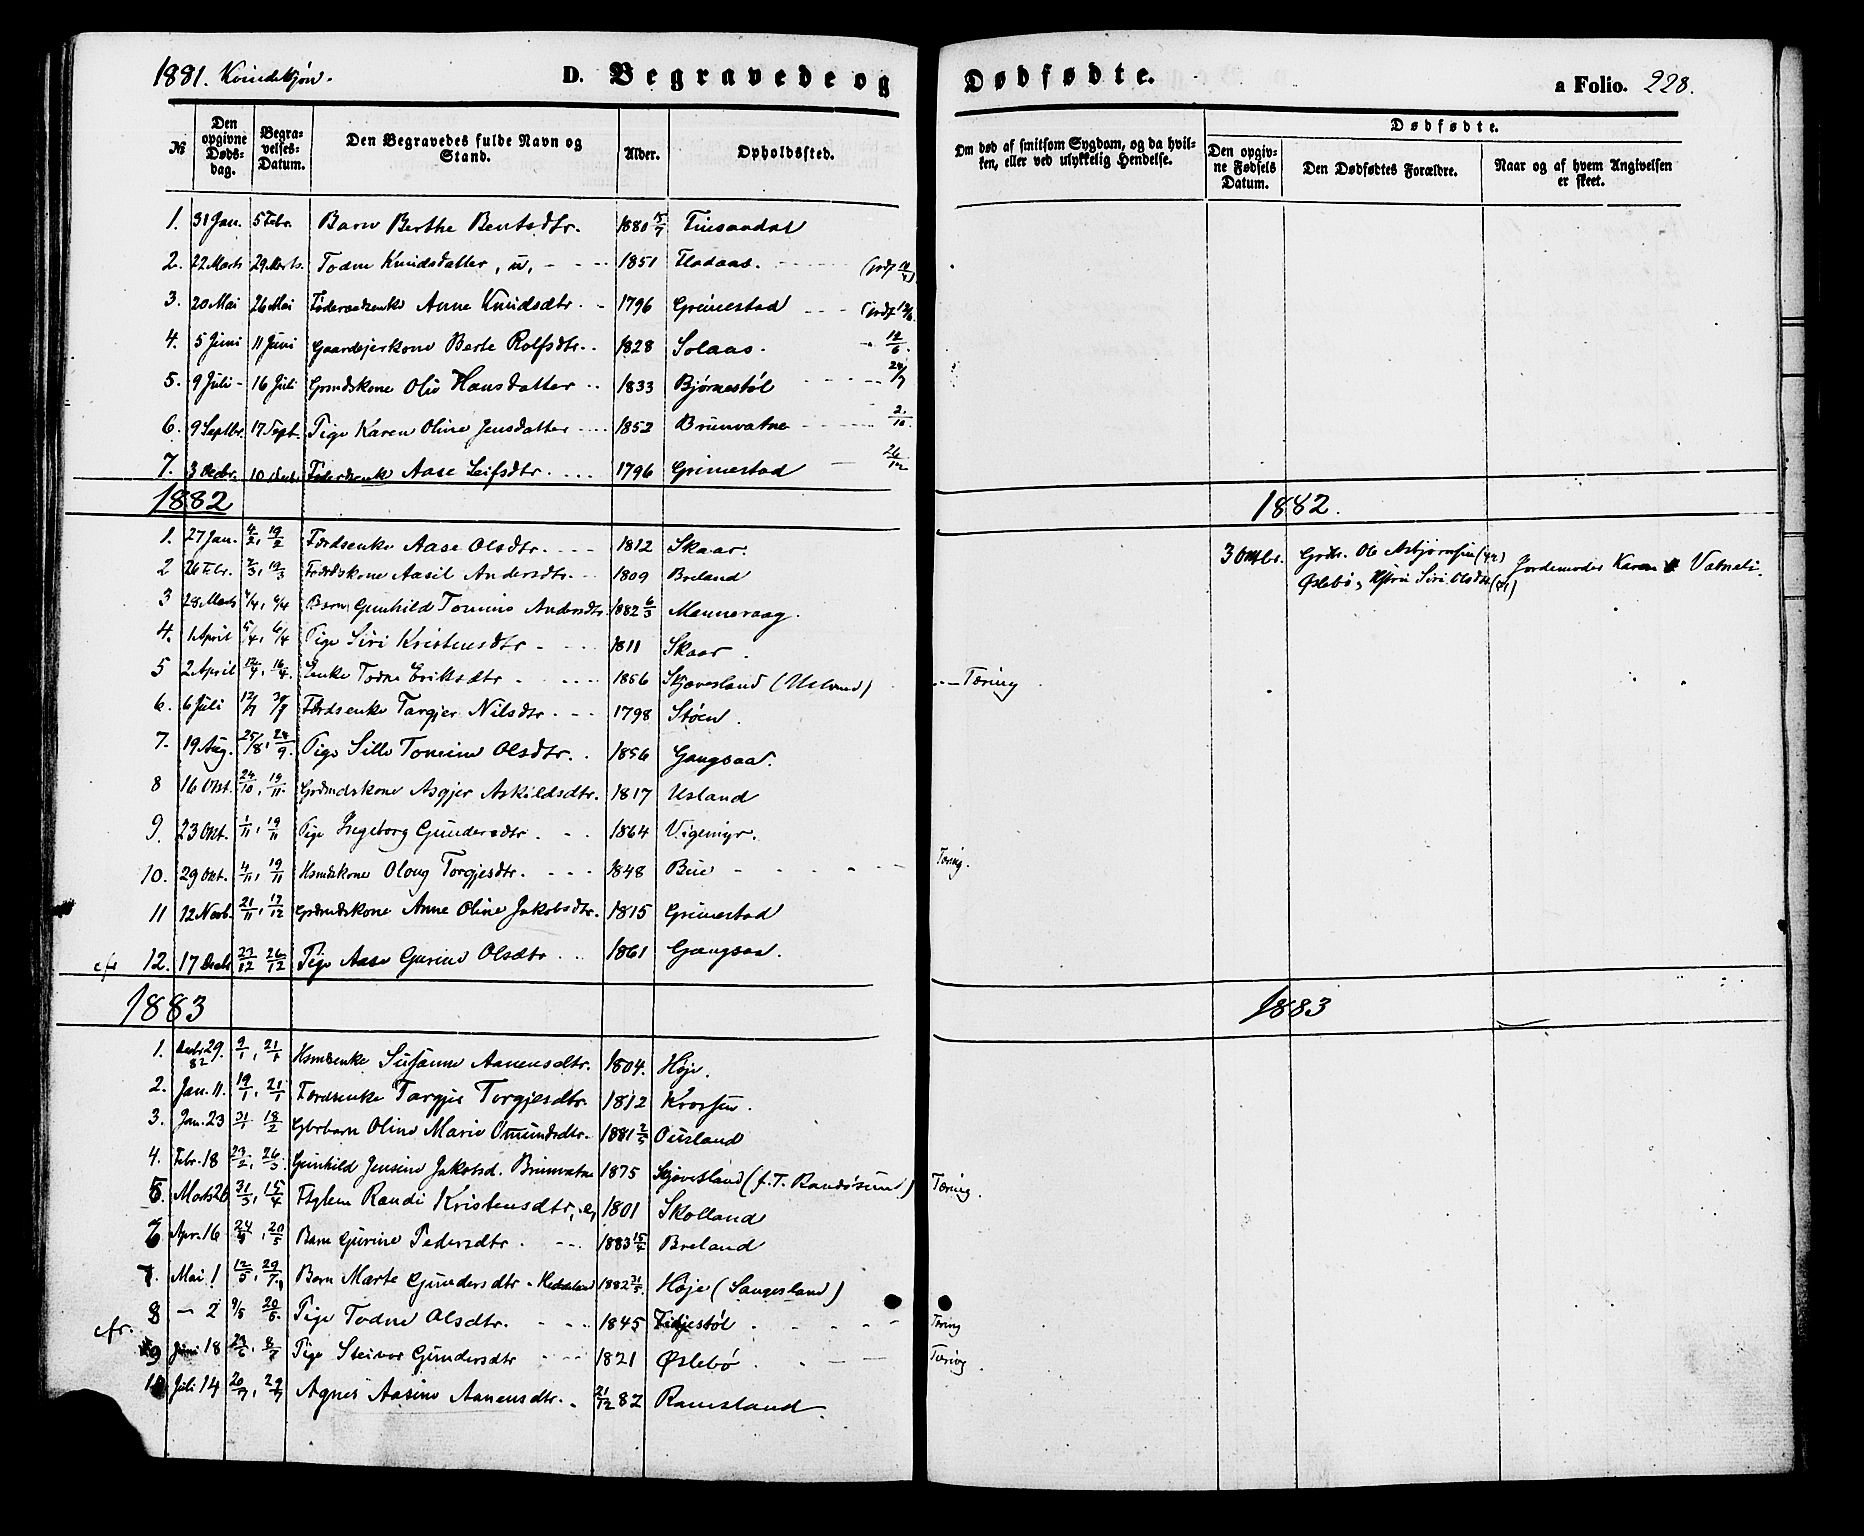 1881. Kvindekjøn. D. Begravede og Dødfødte. a Folio. 228.
№ Den opgivne Dødsdag. Begravelses-Datum. Den Begravedes fulde Navn og Stand. Alder. Opholdssted. Om død af smitsom Sygdom, og da hvilken, eller ved ulykkelig Hendelse. Dødfødte. Den opgivne Fødsels Datum. Den Dødfødtes Forældre. Naar og af hvem Angivelsen er skeet.
1. 31 Jan. 5 Febr. Barn Berthe Bentsdtr. 1880 15/7 Finsandal
2. 22 Marts 29 Marts. Todne Knudsdatter, u, 1851 Fladaas.
3. 20 Mai 26 Mai Føderaadsenke Anne Knudsdtr. 1796 Grimestad (jrdf 12/6.
4. 5 Juni 11 Juni Gaardejerkone Berte Rolfsdtr. 1828 Solaas. 12/6.
5. 9 Juli 16 Juli Grmdskone Oliv Hansdatter 1833 Bjørnestøl 24/7
6. 9 Septbr. 17 Sept. Pige Karen Oline Jensdatter 1852 Brunvatne 2/10
7. 3 Decbr. 10 Decbr. Føderdsenke Aase Leifsdtr. 1796 Grimestad 26/12
1882 1882.
1. 27 Jan. 4/2, 19/2 Fdrdsenke Aase Olsdtr. 1812 Skaar.
3 Oktbr. Grdbr. Ole Asbjørnsen
2 26 Febr. 2/3, 19/3 Fdrdskone Aasil Andersdtr. 1809 Breland
Øslebø, Hstru Siri Olsdtr Jordemoder Karen Vatneli.
3 28 Marts 4/4, 6/4 Barn Gunhild Tomine Andersdtr. 1882 6/3 Manneraag.
4. 1 April 5/4, 6/4 Pige Siri Kristensdtr 1811 Skaar.
5 2 April 12/4, 16/4. Enke Todne Eriksdtr 1856 Skjævesland (Usland) Tæring
6. 6 Juli 12/7 Fdrdsenke Targjer Nilsdtr. 1798 Støen.
7. 19 Aug. 25/8, 24/9. Pige Sille Tomine Olsdtr. 1856 Gangsaa.
8 16 Okt. 24/10, 19/11. Grdmdskone Asgjer Askildsdtr. 1817 Usland
9. 23 Okt. 1/11, 19/11 Pige Ingeborg Gundersdtr. 1864 Vigemyr.
10. 29 Okt. 4/11, 19/11 Hsmdskone Oloug Torgjesdtr. 1848 Bue Tæring.
11 12 Novb. 21/11, 17/12 Grdmdskone Anne Oline Jakobsdtr. 1815 Grimestad
cfr 12. 17 Decb 23/12 26/12 Pige Aase Gurine Olsdtr. 1861 Gangsaa.
1883 1883
1. Decbr 29. 82 9/1, 21/1 Hsmdsenke Susanne Aanensdtr. 1804. Høje.
2. Jan. 11. 19/1, 21/1 Fdrdsenke Targjer Torgjesdtr. 1812 Krossen.
3. Jan. 23 31/1 18/2 Gbrbarn Oline Marie Omundsdtr. 1881 2/5 Ousland
4. Febr. 18 23/2, 26/3. Gunhild Jensine Jakobsd. Brunvatne 1875 Skjævesland (f. T. Randøsund) Tæring.
5. Marts 26 31/3, 15/4 Fglem Randi Kristensdtr, e, 1801 Skolland
6 Apr. 16 24/4, 20/5 Barn Gurine Pedersdtr. 1883 15/4 Breland
7. Mai 1 12/5, 29/7. Barn Marte Gundersdtr 1882 31/5. Høje (Sangesland)
8 — 2 9/5 20/5. Pige Todne Olsdtr. 1845 Tæring
cfr. 9 Juni 18 23/6, 8/7 Pige Steinvor Gundersdtr 1821 Øslebø. Tæring
10 Juli 14 20/7, 29/7 Agnes Aasine Aanensdtr. 21/12 82 Ramsland.